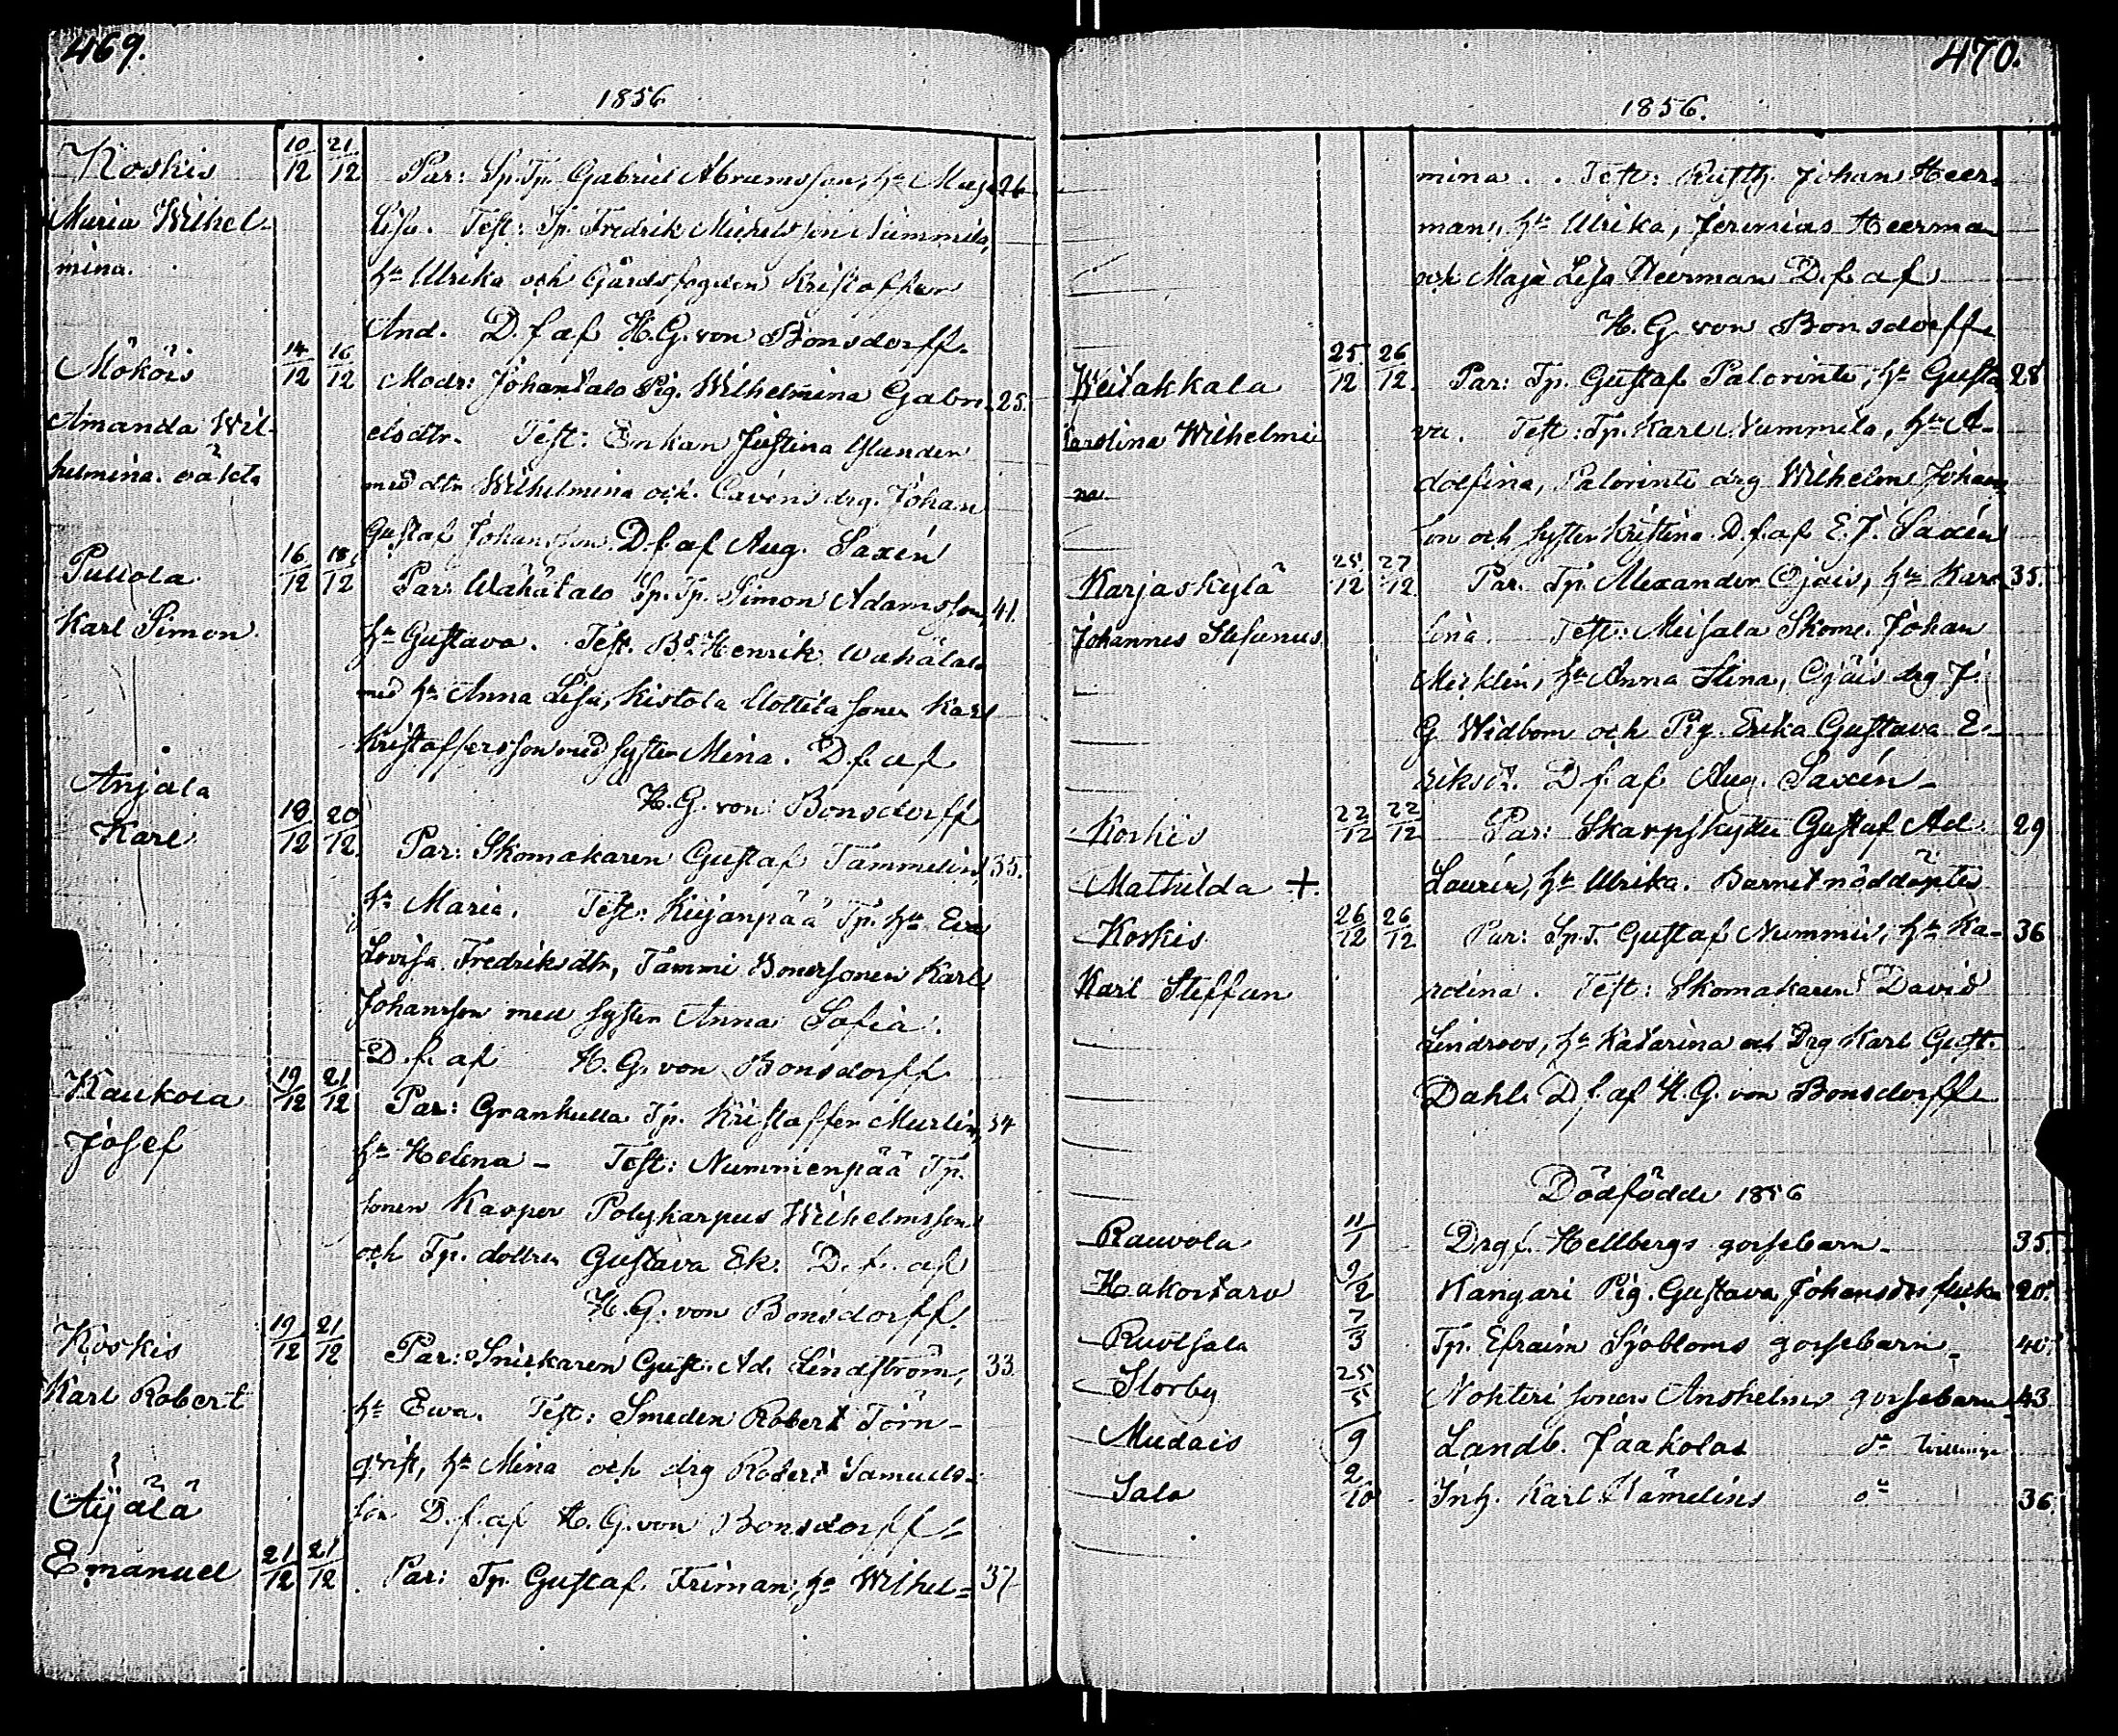 469.
1856
Koskis 10/12 21/12 Par: Sp. Tp. Gabriel Abramsson, hu Maja 26
Maria Wilhel- Lisa. Test: Sp. Fredrik Michelsson Nummila,
mina. hu Ulrika och Gårdsfogden Kristoffer
And. D. f. af H. G. von Bonsdorff.
Mököis 14/12 16/12 Modr: Johantalo Pig. Wilhelmina Gabri- 25.
Amanda Wil- elsdtr. Test: Enkan Justina
helmina. oäkta med dtr Wilhelmina och Cavéns drg. Johan
Gustaf Johansson. D. f. af Aug. Saxén
Pullola 16/12 18/12 Par: Wähätalo Sp. Tp. Simon Adamsson, 41.
Karl Simon. hu Gustava. Test. Bd. Henrik Wähätalo
med hu Anna Lisa, Kistola Uottila sonen Karl
Kristoffersson med syster Mina. D. f. af
Anjala H. G. von Bonsdorff
Karl 19/12 20/12 Par: Skomakaren Gustaf Tammelin, 35.
hu Maria. Test: Kujanpää Tp. hu Eva
Lovisa Fredriksdtr, Tammi Bonersonen Karl
Johansson med syster Anna Sofia.
D. f. af H. G. von Bonsdorff
Kaukola 19/12 21/12 Par: Grankulla Tp. Kristoffer Murlin, 34
Josef hu Helena - Test: Nummienpää Tp.
sonen Kasper Polykarpus Wilhelmsson
och Tp. dottren Gustava Ek. D. f. af
H. G. von Bonsdorff.
Koskis 19/12 21/12 Par: Snickaren Gust. Ad. Lindström, 33.
Karl Robert hu Ewa. Test: Smeden Robert Törn-
qvist, hu Mina och drg Robert Samuels-
Äijälä son D. f. af H. G. von Bonsdorff.
Emanuel 21/12 21/12 Par: Tp. Gustaf Friman, hu Wilhel- 37
470.
1856.
mina. Test: Rusth. Johan Heer-
man, hu Ulrika, Jeremias Heerman
och Maja Lisa Heerman D. f. af
H. G. von Bonsdorff.
Weitakkala 25/12 26/12 Par: Tp. Gustaf Palorinte, hu Gusta- 28
Karolina Wilhelmi va. Test: Tp. Karl Nummila, hu A-
na dolfina, Palorinte drg Wilhelm Johans
son och syster Kristina. D. f. af E. J. Saxén
Karjaskylä 25/12 27/12 Par. Tp. Alexander Ojais, hu Karo 35.
Johannes Stefanus. lina. Test: Meisala Skom. Johan
Mecklin, hu Anna Stina, Ojais drg J.
G Widbom och Pig. Erika Gustava E-
riksdr. D. f. af Aug. Saxén -
Koskis 22/12 22/12 Par: Skarpskytten Gustaf Ad. 29
Mathilda + Laurén, hu Ulrika. Barnet nöddöptes
Koskis 26/12 26/12 Par: Sp. T. Gustaf Nummis, hu Ka- 36
Karl Steffan rolina. Test: Skomakaren David
Lindroos, hu Katarina och Drg Karl Gust.
Dahl. D. f. af H. G. von Bonsdorff.
Dödfödde 1856
Rauvola 11/1 Drg f. Hellbergs gossebarn. 35.
Hakostaro 9/2 Kangari Pig. Gustava Johansdrs flicka 20.
Ruotsala 7/3 Tp. Efraim Sjöbloms gossebarn. 40.
Storby 25/5 Nohteri sonen Anshelms gossebarn 43
Mudais 9 Landb. Jaakolas do
Salo 2/10 Inh. Karl Hämelins do 36.